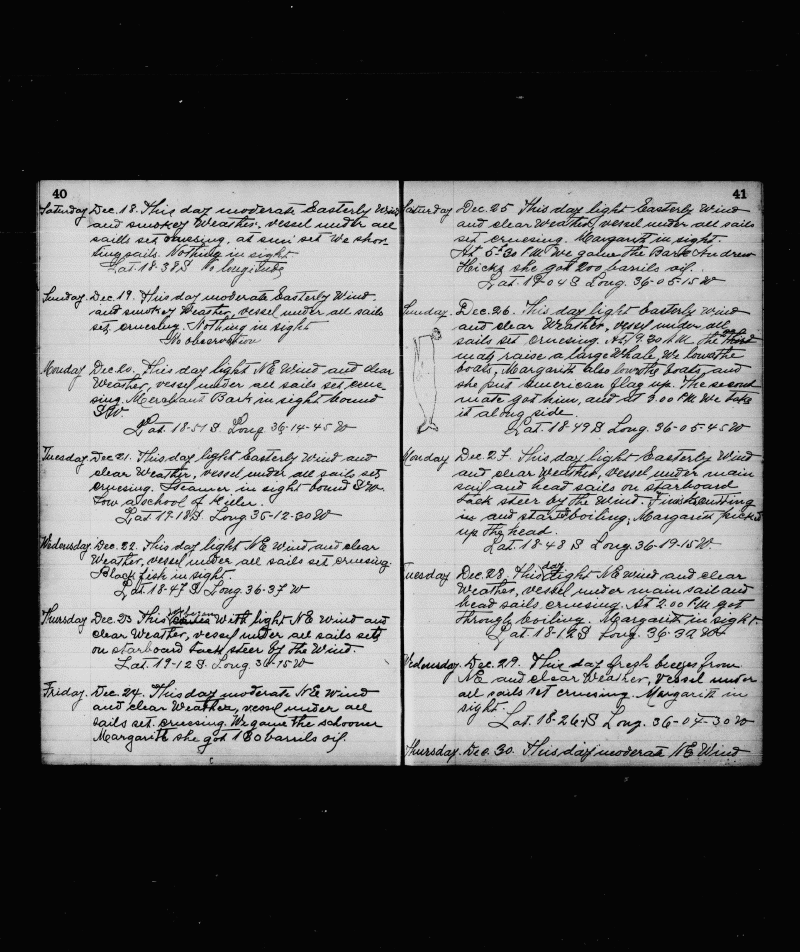 40
Saturday Dec. 18. This day moderate Easterly Wind
and smokey Weather, vessel under all
sails set cruesing, at sun set We shor
ting sails. Nothing in sight.
Lat. 18-38 S No longitude
Sunday Dec. 19. This day moderate Easterly Wind
and smokey Weather, vessel under all sails
set cruesing. Nothing in sight
No observation
Monday Dec. 20. This day light NE Wind and clear
Weather, vessel under all sails set crue-
sing. Merchant Bark in sight bound
SW
Lat. 18-51 S. Long 36-14-45 W
Tuesday Dec. 21. This day light Easterly Wind and
clear Weather, vessel under all sails set
cruesing. Steamer in sight bound SW.
Sow a school of Kiler.
Lat. 19-18 S. Long. 36-12-30 W
Wednesday Dec. 22. This day light NE Wind and clear
Weather, vessel under all sails set cruesing.
Black fish in sight.
Lat. 18-47 S Long. 36-37 W
Thursday Dec. 23 This With light NE Wind and
clear Weather, vessel under all sails set
on starboard tack steer by the Wind.
Lat. 19-12 S. Long. 36-15 W
Friday. Dec. 24. This day moderate NE Wind
and clear Weather, vessel under all
sails set cruesing. We game the schooner
Margarite she got 180 barrils oil.
41
Saturday Dec. 25 This day light Easterly Wind
and clear Weather, vessel under all sails
set cruesing. Margarite in sight.
At 5-30 P.M. We game the Bark Andrew
Hicks she got 200 barrils oil.
Lat. 19-04 S Long. 36-05-15 W
Sunday. Dec. 26. This day light Easterly Wind
and clear Weather, vessel under all
sails set cruesing. At 9.30 A.M. the
mate raise a large Whale. We lowe the
boats, Margarite also lowe the boats, and
she put American flag up. The second
mate got him, and at 3.00 P.M. We take
it along side.
Lat. 18-49 S Long. 36-05-45 W
Monday Dec. 27. This day light Easterly Wind
and clear Weather, vessel under main
sail and head sails on starboard
tack steer by the Wind. Finish cutting
in and start boiling, Margarite picked
up the head.
Lat. 18-48 S Long. 36-19-15 W.
Tuesday Dec. 28. This day light NE Wind and clear
Weather, vessel under main sail and
head sails cruesing. At 2.00 P.M. got
through boiling. Margarite in sight
Lat. 18-12 S Long. 36-32 W
Wednesday. Dec. 29. This day fresh breezes from
NE and clear Weather, vessel under
all sails set cruesing. Margarite in
sight.
Lat. 18-26 S Long. 36-04-30 W
Thursday. Dec. 30. This day moderate NE Wind